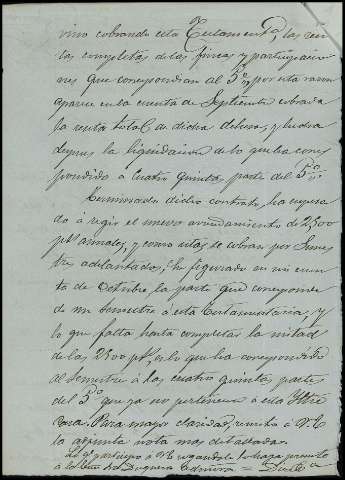 vino cobrando esta Testamentª, las ren
tas completas de las fincas y participacio
nes que correspondian al 5º, por esta razon
aparece en la cuenta de Septiembre cobrada
la renta total de dicha dehesa, y hecha
despues la liquidacion de lo que ha corres
pondido a cuatro quintas partes del 5º.
Terminado dicho contrato, ha empeza
do á regir el nuevo arrendamiento de 2500
pts anuales, y como estas se cobran por Semes
tres adelantados, he figurado en mi cuenta
de Octubre, la parte que corresponde
de un semestre á esta Testamentaria, y
lo que falta hasta completar la mitad
de las 2500 pts, es lo que ha correspondido
al Semestre á las cuatro quintas partes
del 5º que ya no pertenece á esta Iltre
Casa. Para mayor claridad, remito á V.E.
la adjunta nota mas detallada.
Lo q. participo á V.E. rogandole lo haga presente
á la Duquesa